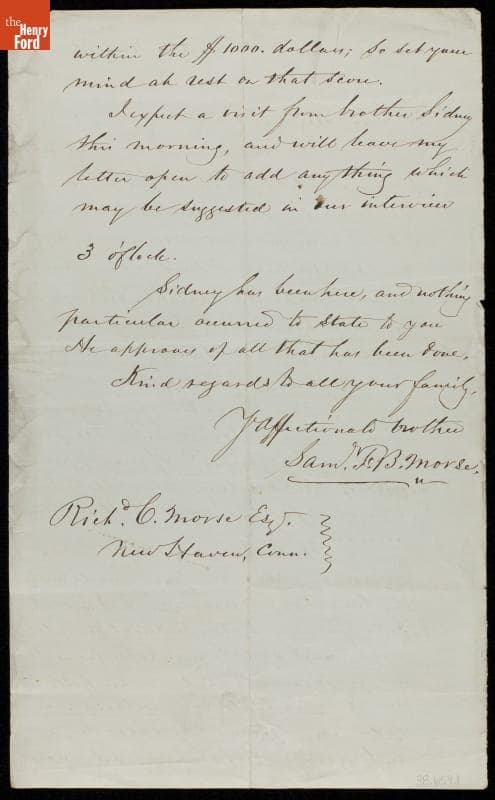 the
Henry
Ford
within the $1000. dollars; So set your
mind at rest on that score.
I expect a visit from brother Sidney
this morning, and will leave my
letter open to add anything which
may be suggested in our interview
3 o'flock.
Sidney has been here, and nothing
particular occurred to State to you
He approves of all that has been done.
Kind regards to all your family.
Yr Affectionate brother
Saml. F. B. Morse.
Richd. C. Morse Esqr.
New Haven, Conn.